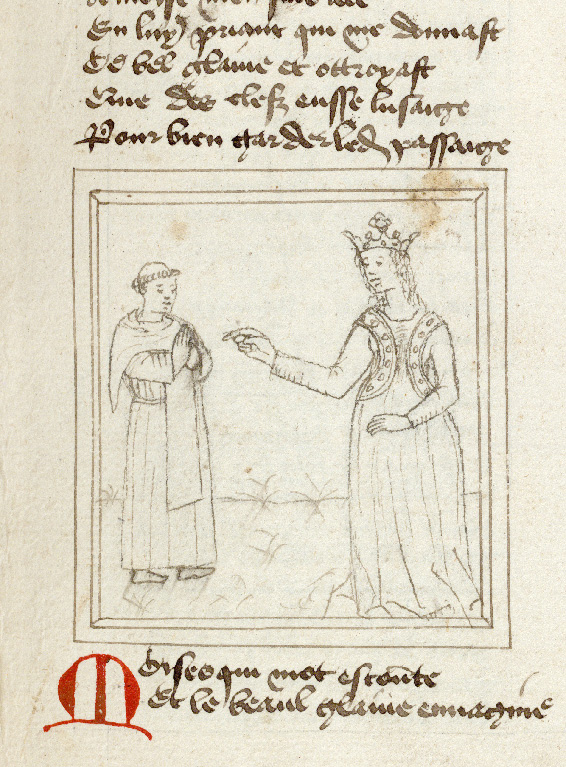 En luy priant qui me donnast
Ce bel glaiue et ottroyast
Que des clefz eusse lusaige
Pour bien garder led passaige
Moises qui mot escoute
Et le beaul glaiue enuagine